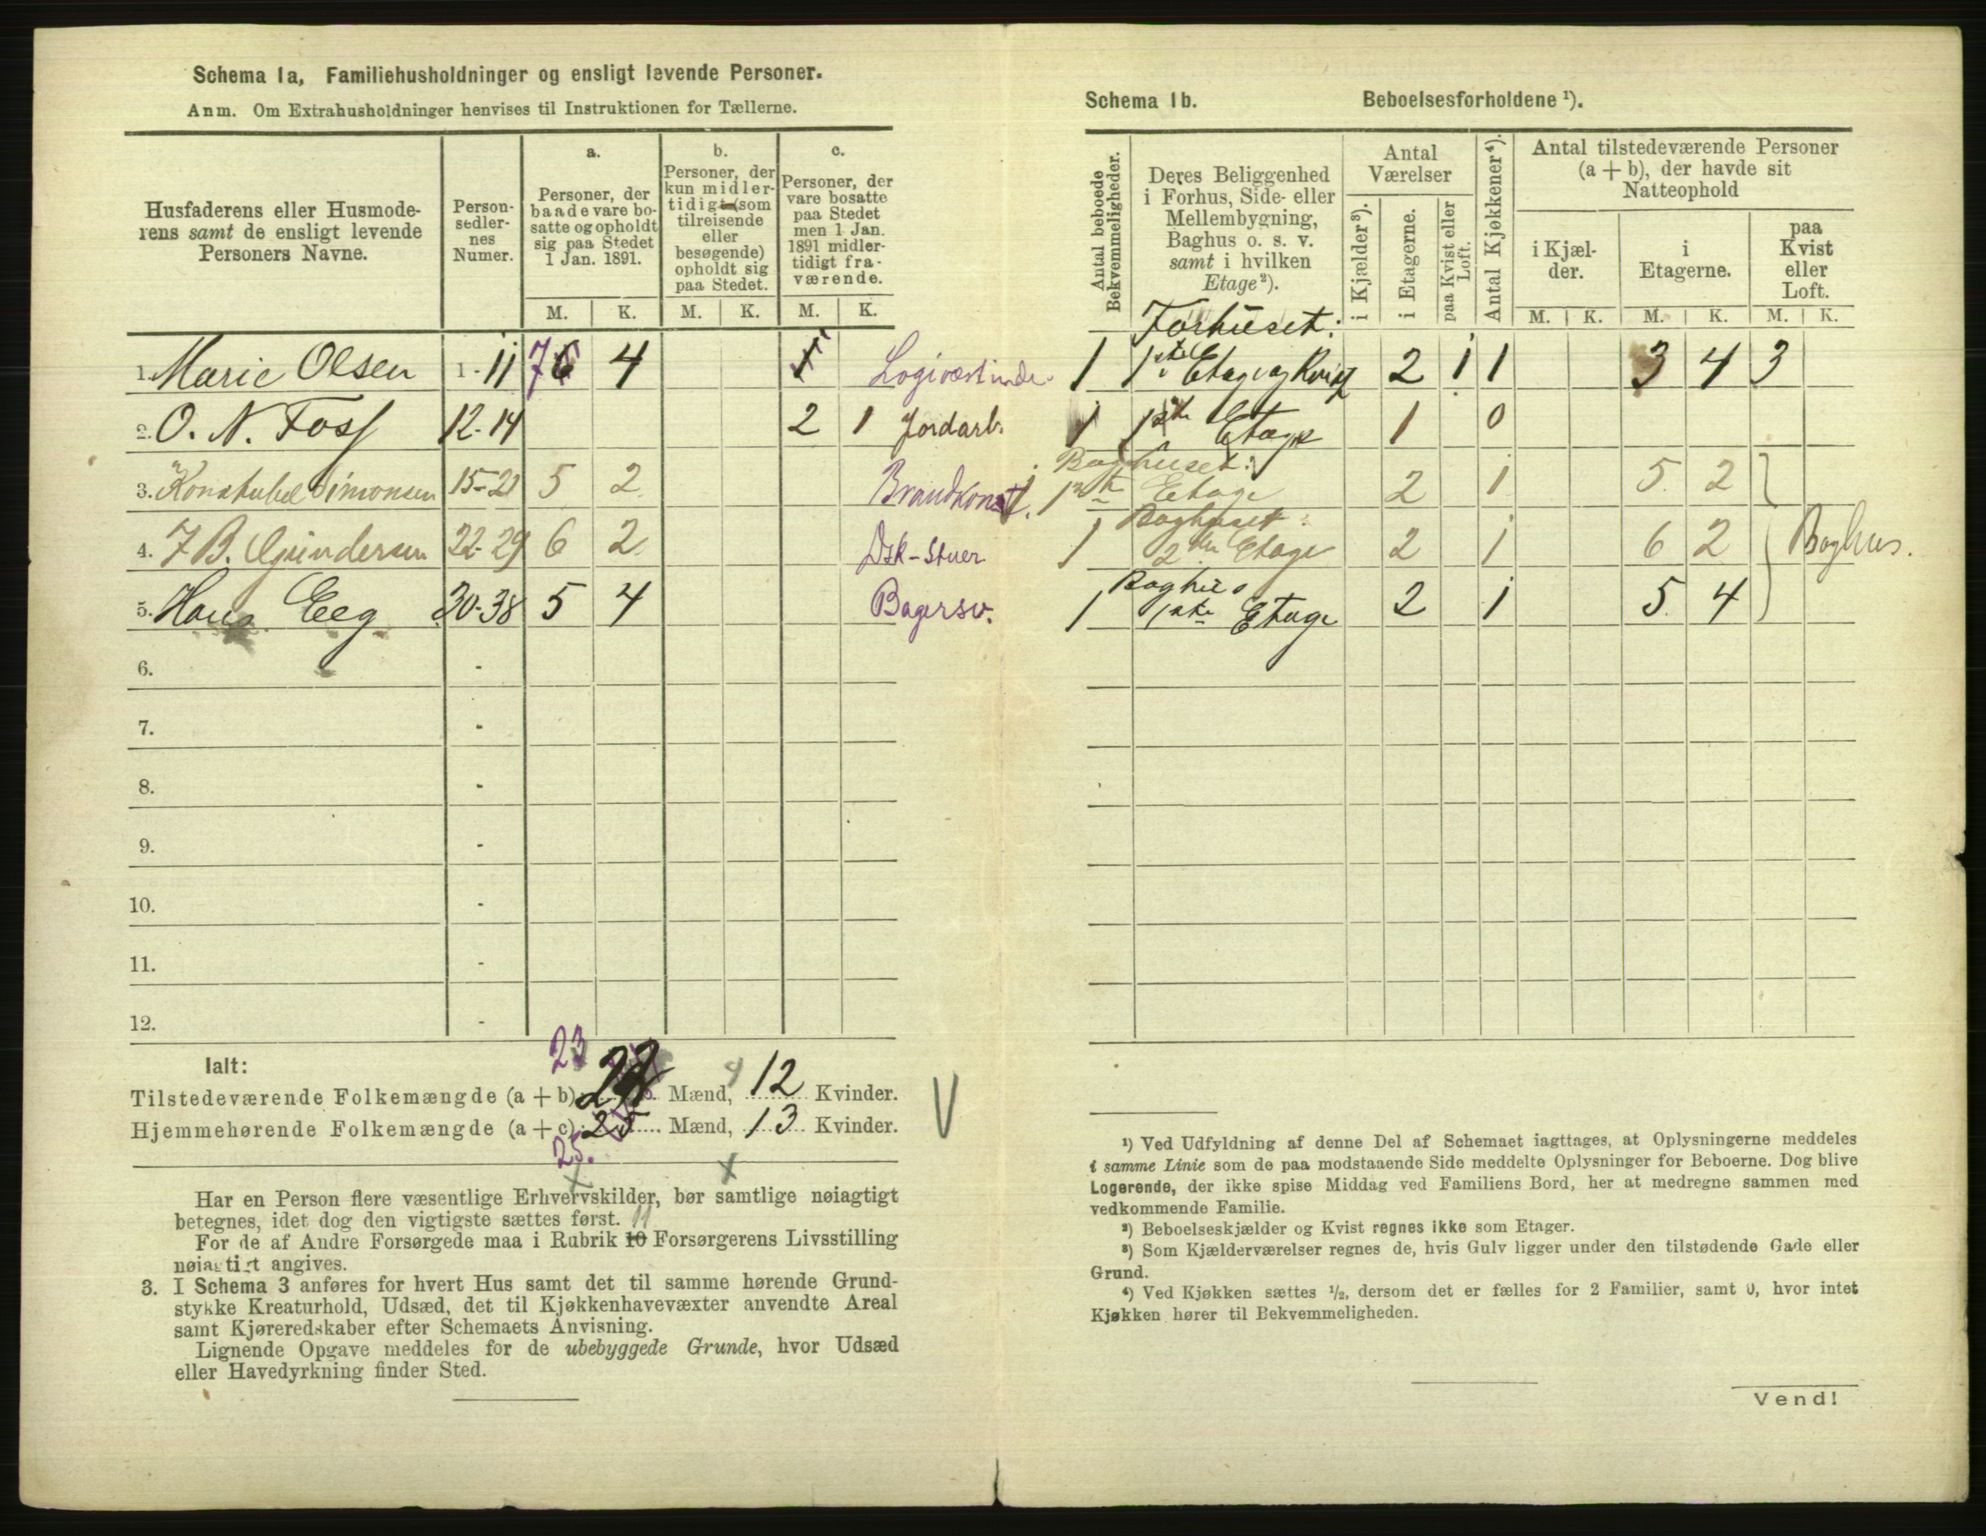 Schema 1a, Familiehusholdninger og ensligt levende Personer.
Anm. Om Extrahusholdninger henvises til Instruktionen for Tællerne.
Husfaderens eller Husmode-
rens samt de ensligt levende
Personers Navne.
Person-
sedler-
nes
Numer.
a.
Personer, der
baade vare bo-
satte og opholdt
sig paa Stedet
1 Jan. 1891.
b.
Personer, der
kun midler-
tidigt (som
tilreisende
eller
besøgende)
opholdt sig
paa Stedet.
c.
Personer, der
vare bosatte
paa Stedet
men 1 Jan.
1891 midler-
tidigt fra-
værende.
M. K. M. K. M. K.
1. Marie Olsen 1-11 7 6 4 1 Logivertinde
2. O. N. Foss 12-14 2 1 Jordarb.
3. Konstabel Simonsen 15-21 5 2 Brandkonst.
4. J B. Gundersen 22-29 6 2 Dsk-Stuer
5. Hans Eeg 30-38 5 4 Bagersv.
6. -
7. -
8. -
9. -
10. -
11. -
12. -
23
Ialt:
Tilstedeværende Folkemængde (a + b) Mænd, 12 Kvinder.
Hjemmehørende Folkemængde (a + c): 25 Mænd, 13 Kvinder.
25.
Har en Person flere væsentlige Erhvervskilder, bør samtlige nøiagtigt
betegnes, idet dog den vigtigste sættes først. 11
For de af Andre Forsørgede maa i Rubrik 10 Forsørgerens Livsstilling
nøiagtigt angives.
3. I Schema 3 anføres for hvert Hus samt det til samme hørende Grund-
stykke Kreaturhold, Udsæd, det til Kjøkkenhavevæxter anvendte Areal
samt Kjøreredskaber efter Schemaets Anvisning.
Lignende Opgave meddeles for de ubebyggede Grunde, hvor Udsæd
eller Havedyrkning finder Sted.
Schema 1b. Beboelsesforholdene ¹).
Antal beboede
Bekvemmeligheder.
Deres Beliggenhed
i Forhus, Side- eller
Mellembygning,
Baghus o. s. v.
samt i hvilken
Etage²).
Antal
Værelser
i Kjælder³).
i Etagerne.
paa Kvist eller
Loft.
Antal Kjøkkener⁴).
Antal tilstedeværende Personer
(a + b), der havde sit
Natteophold
i Kjæl-
der.
i
Etagerne.
paa
Kvist
eller
Loft.
M. K. M. K. M. K.
Forhuset:
1 1ste Etage og Kvist 2 1 1 3 4 3
1 1ste Etage 1 0
Baghuset:
1 1ste Etage 2 1 5 2
Baghuset:
1 2den Etage 2 1 6 2 Baghus.
Baghus
1 1ste Etage 2 1 5 4
¹) Ved Udfyldning af denne Del af Schemaet iagttages, at Oplysningerne meddeles
i samme Linie som de paa modstaaende Side meddelte Oplysninger for Beboerne. Dog blive
Logerende, der ikke spise Middag ved Familiens Bord, her at medregne sammen med
vedkommende Familie.
²) Beboelseskjælder og Kvist regnes ikke som Etager.
³) Som Kjælderværelser regnes de, hvis Gulv ligger under den tilstødende Gade eller
Grund.
⁴) Ved Kjøkken sættes ½, dersom det er fælles for 2 Familier, samt 0, hvor intet
Kjøkken hører til Bekvemmeligheden.
Vend!